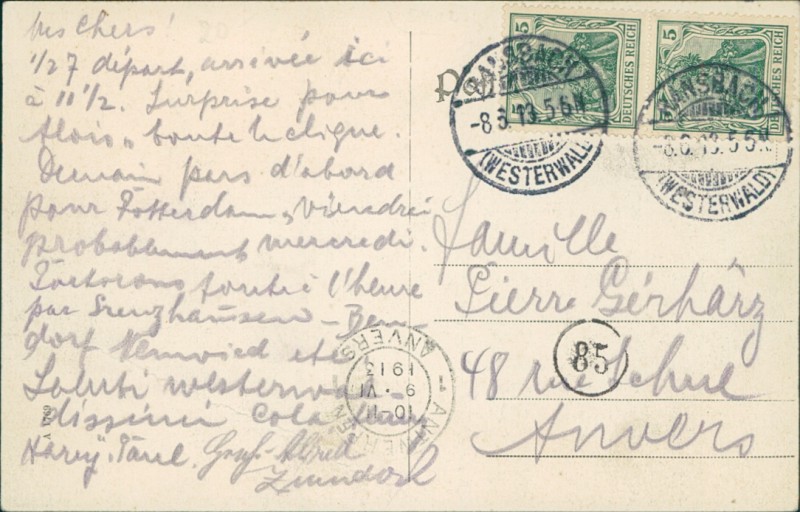 mes chers!
1/27 départ, arrivée ici
à 11 1/2. Surprise pour
Alois, toute la clique.
Demain pars d'abord
pour Rotterdam, viendrai
probablement mercredi.
tout à l'heure
par Grenzhausen - Ben
dorf Neuwied etc
Saluti westerwal
dissimi
Harry. Paul. Alfred
A 1769
Po
5 5
DEUTSCHES REICH
5
DEUTSCHES REICH
RANSBACH
-8.6.13.5-6N
(WESTERWALD)
RANSBACH
-8.6.13.5-6N
(WESTERWALD)
Famille
Pierre Gérhärz
48 rue Schul
Anvers
85
ANVERS
1913
9 · VI
10-11
ANTWERPEN